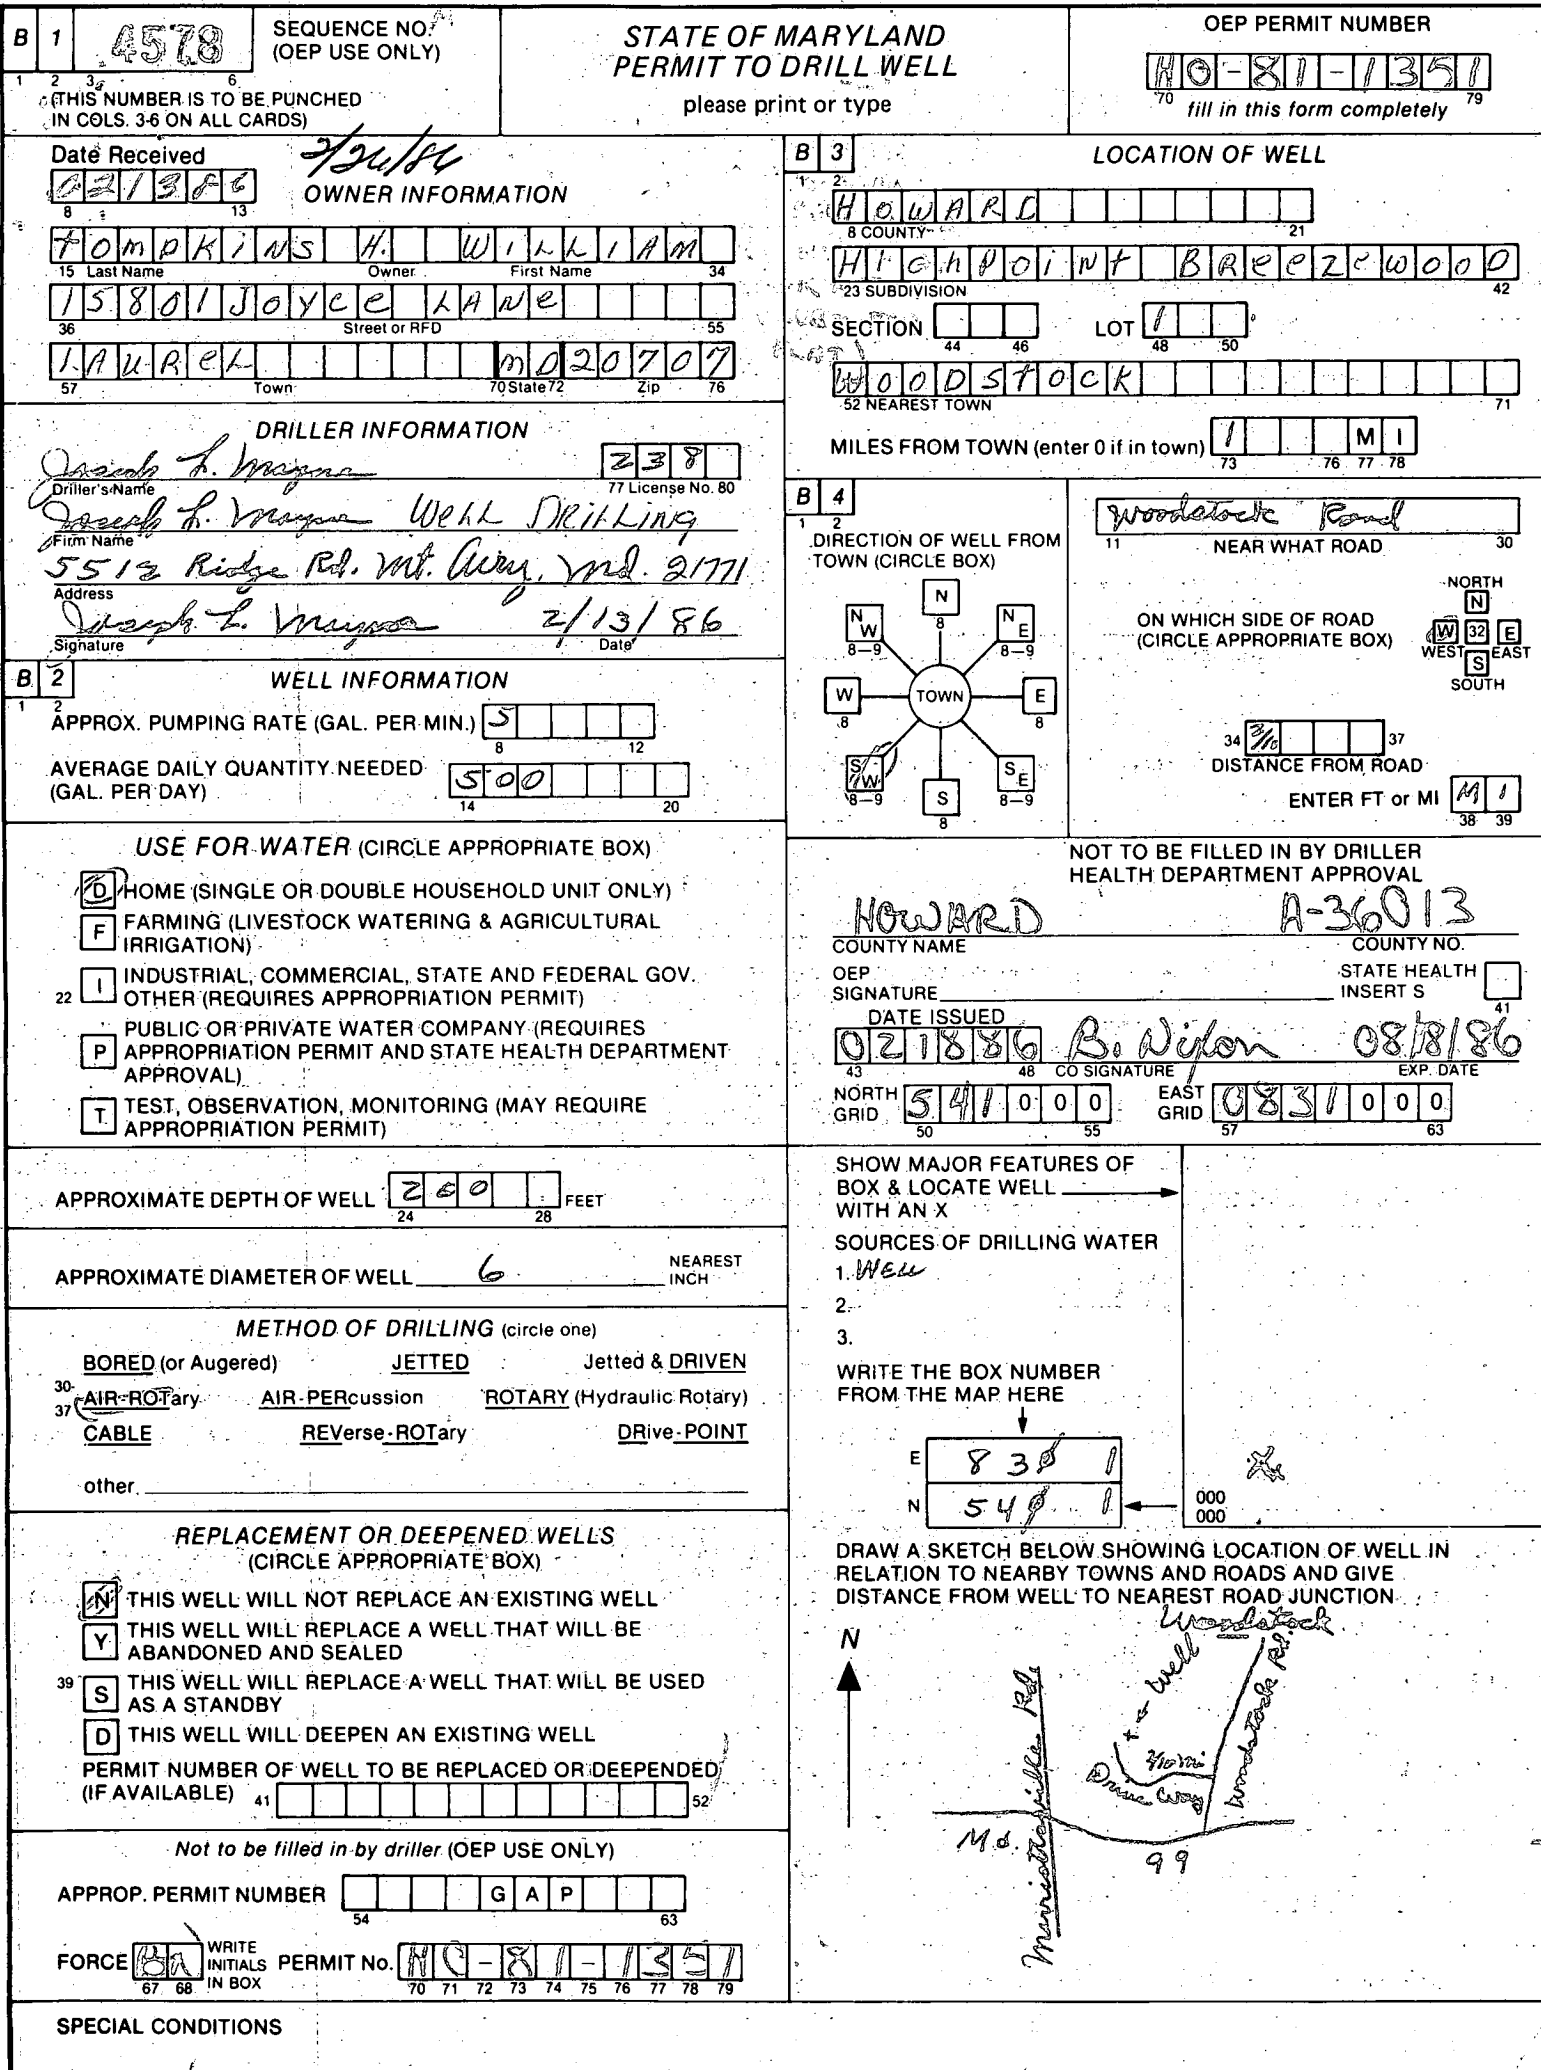 B 1 4578 SEQUENCE NO. (OEP USE ONLY)
1 2 3 6
(THIS NUMBER IS TO BE PUNCHED
IN COLS. 3-6 ON ALL CARDS)
STATE OF MARYLAND
PERMIT TO DRILL WELL
please print or type
OEP PERMIT NUMBER
HO-81-1351
70 79
fill in this form completely
Date Received 2/26/86
021386
8 13
OWNER INFORMATION
TOMPKINS H. WILLIAM
15 Last Name Owner First Name 34
15801 JOYCE LANE
36 Street or RFD 55
LAUREL MD 20707
57 Town 70 State 72 Zip 76
DRILLER INFORMATION
Joseph L. Mayne 238
Driller's Name 77 License No. 80
Joseph L. Mayne Well Drilling
Firm Name
5512 Ridge Rd. Mt. Airy, Md. 21771
Address
Joseph L. Mayne 2/13/86
Signature Date
B 2 WELL INFORMATION
1 2
APPROX. PUMPING RATE (GAL. PER MIN.) 5
8 12
AVERAGE DAILY QUANTITY NEEDED
(GAL. PER DAY) 500
14 20
USE FOR WATER (CIRCLE APPROPRIATE BOX)
D HOME (SINGLE OR DOUBLE HOUSEHOLD UNIT ONLY)
F FARMING (LIVESTOCK WATERING & AGRICULTURAL
IRRIGATION)
22 I INDUSTRIAL, COMMERCIAL, STATE AND FEDERAL GOV.
OTHER (REQUIRES APPROPRIATION PERMIT)
P PUBLIC OR PRIVATE WATER COMPANY (REQUIRES
APPROPRIATION PERMIT AND STATE HEALTH DEPARTMENT
APPROVAL)
T TEST, OBSERVATION, MONITORING (MAY REQUIRE
APPROPRIATION PERMIT)
APPROXIMATE DEPTH OF WELL 200 FEET
24 28
APPROXIMATE DIAMETER OF WELL 6 NEAREST
INCH
METHOD OF DRILLING (circle one)
BORED (or Augered) JETTED Jetted & DRIVEN
30-37 AIR-ROTary AIR-PERcussion ROTARY (Hydraulic Rotary)
CABLE REVerse-ROTary DRive-POINT
other
REPLACEMENT OR DEEPENED WELLS
(CIRCLE APPROPRIATE BOX)
N THIS WELL WILL NOT REPLACE AN EXISTING WELL
Y THIS WELL WILL REPLACE A WELL THAT WILL BE
ABANDONED AND SEALED
39 S THIS WELL WILL REPLACE A WELL THAT WILL BE USED
AS A STANDBY
D THIS WELL WILL DEEPEN AN EXISTING WELL
PERMIT NUMBER OF WELL TO BE REPLACED OR DEEPENDED
(IF AVAILABLE) 41 52
Not to be filled in by driller (OEP USE ONLY)
APPROP. PERMIT NUMBER G A P
54 63
FORCE WRITE INITIALS IN BOX PERMIT No. HO-81-1351
67 68 70 71 72 73 74 75 76 77 78 79
SPECIAL CONDITIONS
B 3 LOCATION OF WELL
1 2
HOWARD
8 COUNTY 21
HIGHPOINT BREEZEWOOD
23 SUBDIVISION 42
SECTION LOT 1
44 46 48 50
WOODSTOCK
52 NEAREST TOWN 71
MILES FROM TOWN (enter 0 if in town) 1 M I
73 76 77 78
B 4
1 2
DIRECTION OF WELL FROM
TOWN (CIRCLE BOX)
N 8
NW 8-9 NE 8-9
W 8 TOWN E 8
SW 8-9 SE 8-9
S 8
Woodstock Road
11 NEAR WHAT ROAD 30
ON WHICH SIDE OF ROAD
(CIRCLE APPROPRIATE BOX)
NORTH
N
W 32 E
WEST EAST
S
SOUTH
34 3/10 37
DISTANCE FROM ROAD
ENTER FT or MI M I
38 39
NOT TO BE FILLED IN BY DRILLER
HEALTH DEPARTMENT APPROVAL
HOWARD A-36013
COUNTY NAME COUNTY NO.
OEP
SIGNATURE STATE HEALTH
INSERT S
41
DATE ISSUED
021886 B. Nixon 08/18/86
43 48 CO SIGNATURE EXP. DATE
NORTH GRID 541000 EAST GRID 0831000
50 55 57 63
SHOW MAJOR FEATURES OF
BOX & LOCATE WELL
WITH AN X
SOURCES OF DRILLING WATER
1. Well
2.
3.
WRITE THE BOX NUMBER
FROM THE MAP HERE
E 830 1
N 540 1
000
000
X
DRAW A SKETCH BELOW SHOWING LOCATION OF WELL IN
RELATION TO NEARBY TOWNS AND ROADS AND GIVE
DISTANCE FROM WELL TO NEAREST ROAD JUNCTION
N
Woodstock
Well
Woodstock Rd.
Drive Way
Marriottsville Rd
Md. 99